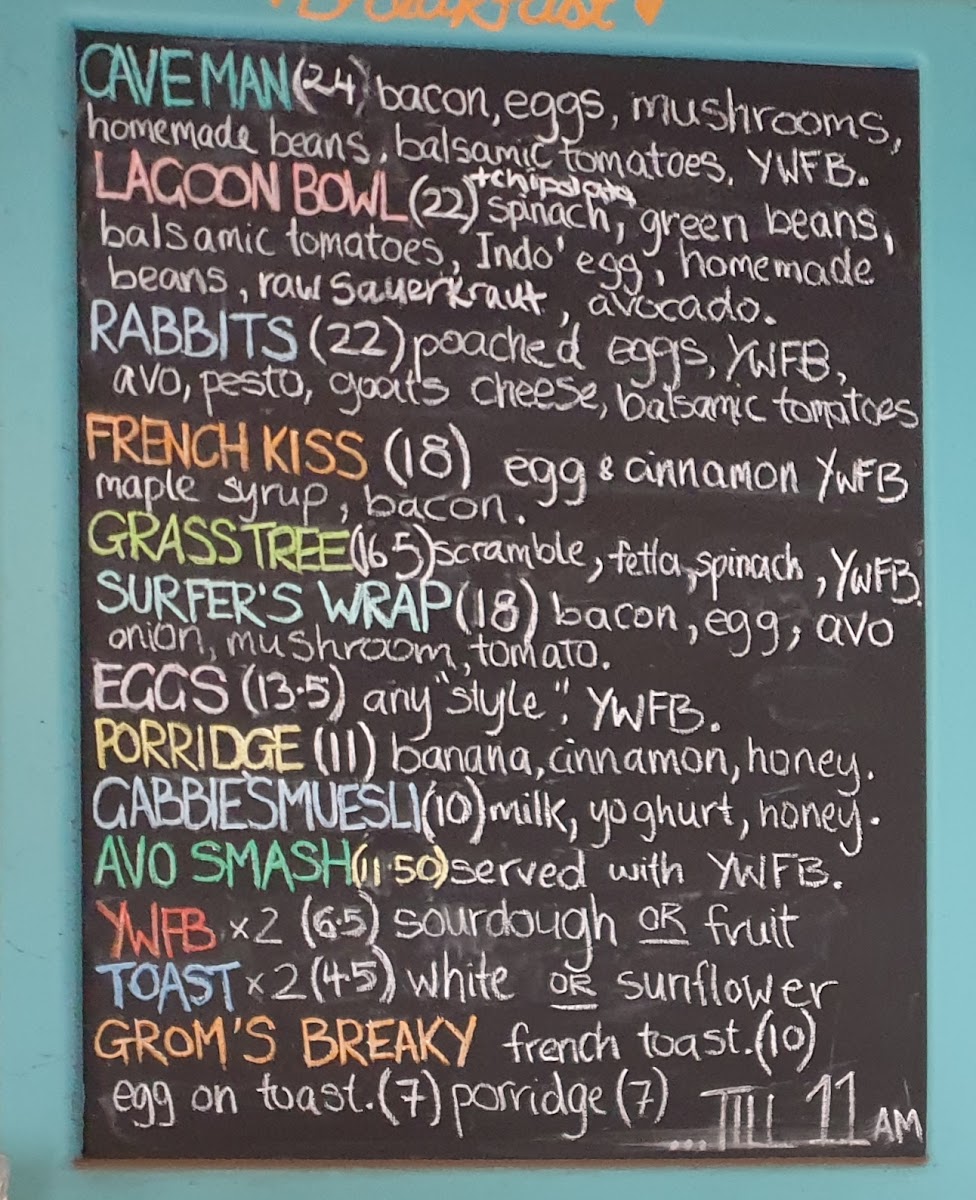 Breakfast
CAVEMAN (24) bacon, eggs, mushrooms,
homemade beans, balsamic tomatoes, YWFB.
+chipolata
LAGOON BOWL (22) spinach, green beans,
balsamic tomatoes, Indo' egg, homemade
beans, raw sauerkraut, avocado.
RABBITS (22) poached eggs, YWFB,
avo, pesto, goat's cheese, balsamic tomatoes
FRENCH KISS (18) egg & cinnamon YWFB
maple syrup, bacon.
GRASSTREE (16.5) scramble, fetta, spinach, YWFB.
SURFER'S WRAP (18) bacon, egg, avo
onion, mushroom, tomato.
EGGS (13.5) any "style". YWFB.
PORRIDGE (11) banana, cinnamon, honey.
GABBIE'S MUESLI (10) milk, yoghurt, honey.
AVO SMASH (11.50) served with YWFB.
YWFB x2 (6.5) sourdough OR fruit
TOAST x2 (4.5) white OR sunflower
GROM'S BREAKY french toast. (10)
egg on toast. (7) porridge (7)
...TILL 11 AM